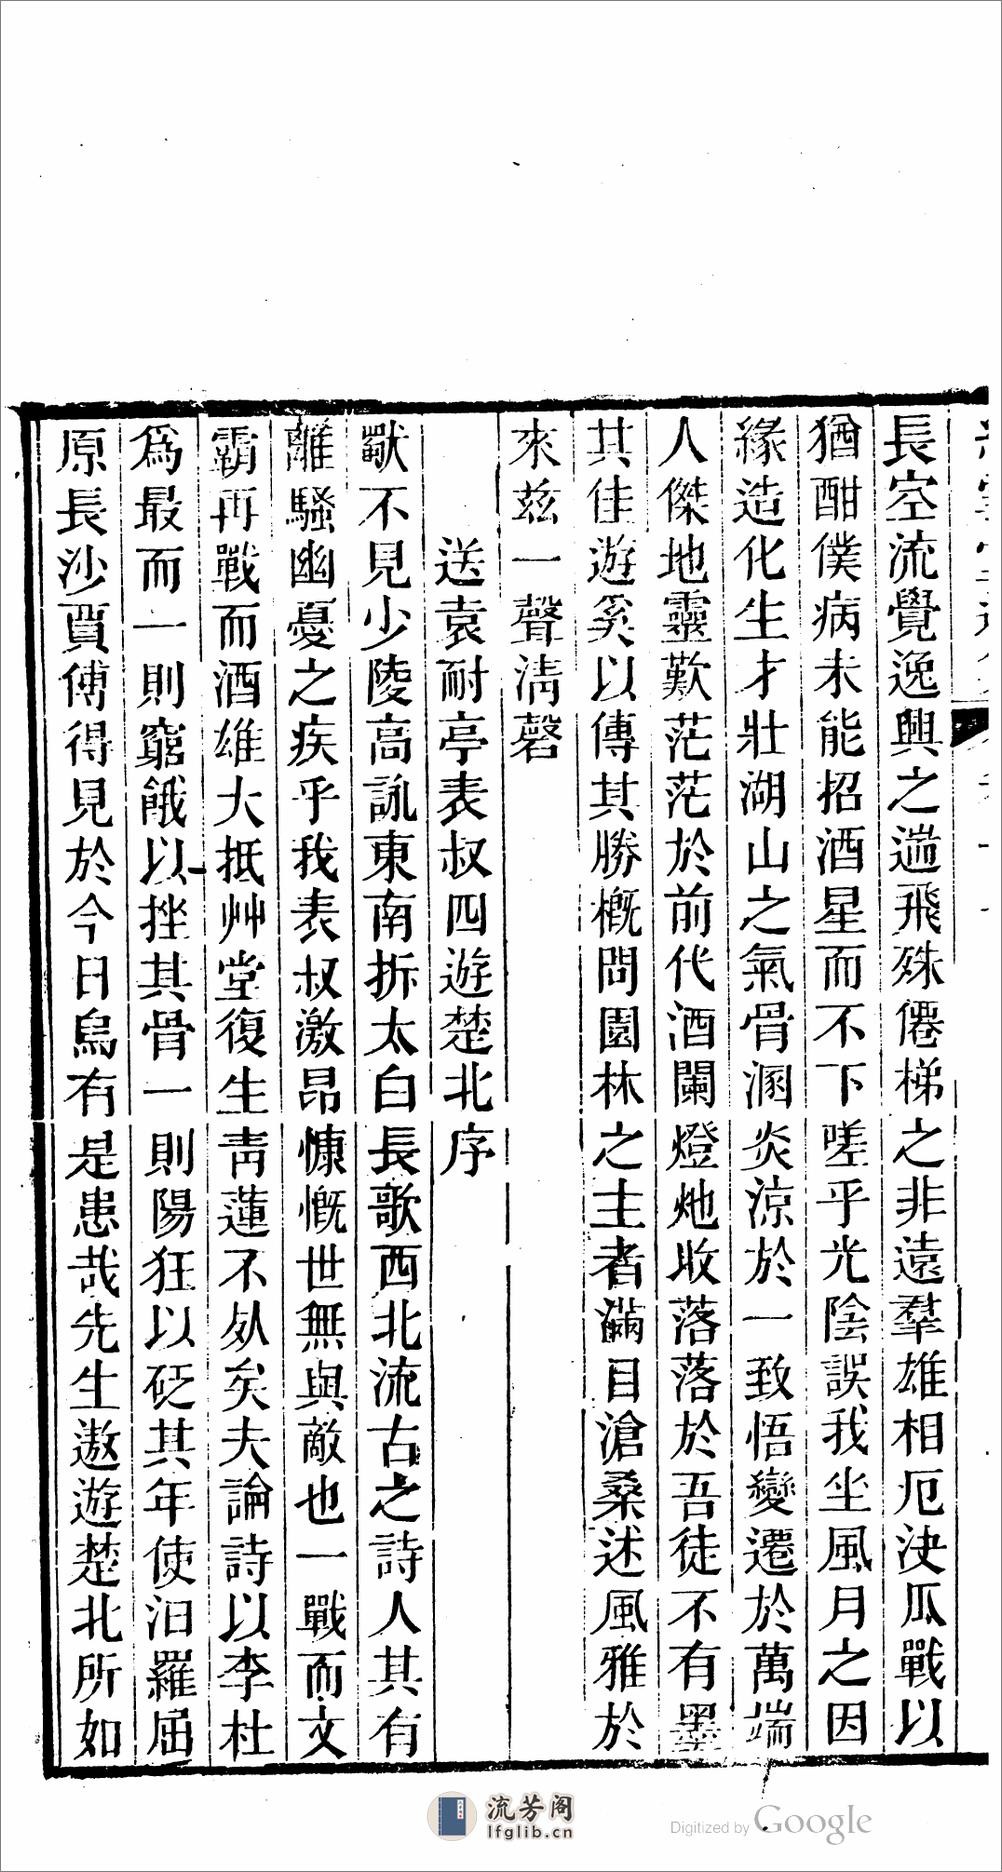 長空流覺逸興之遄飛殊僊梯之非遠羣雄相厄決瓜戰以
猶酣僕病未能招酒星而不下嗟乎光陰誤我坐風月之因
緣造化生才壯湖山之氣骨溷炎涼於一致悟變遷於萬端
人傑地靈歎茫茫於前代酒闌燈灺收落落於吾徒不有墨
其佳遊奚以傳其勝概問園林之主者滿目滄桑述風雅於
來兹一聲清磬
送袁耐亭表叔四遊楚北序
猷不見少陵高詠東南拆太白長歌西北流古之詩人其有
離騷幽憂之疾乎我表叔激昂慷慨世無與敵也一戰而文
霸再戰而酒雄大抵艸堂復生青蓮不死矣夫論詩以李杜
爲最而一則窮餓以挫其骨一則陽狂以砭其年使汨羅屈
原長沙賈傅得見於今日烏有是患哉先生遨遊楚北所如
流芳阁
lfglib.cn
Digitized by Google